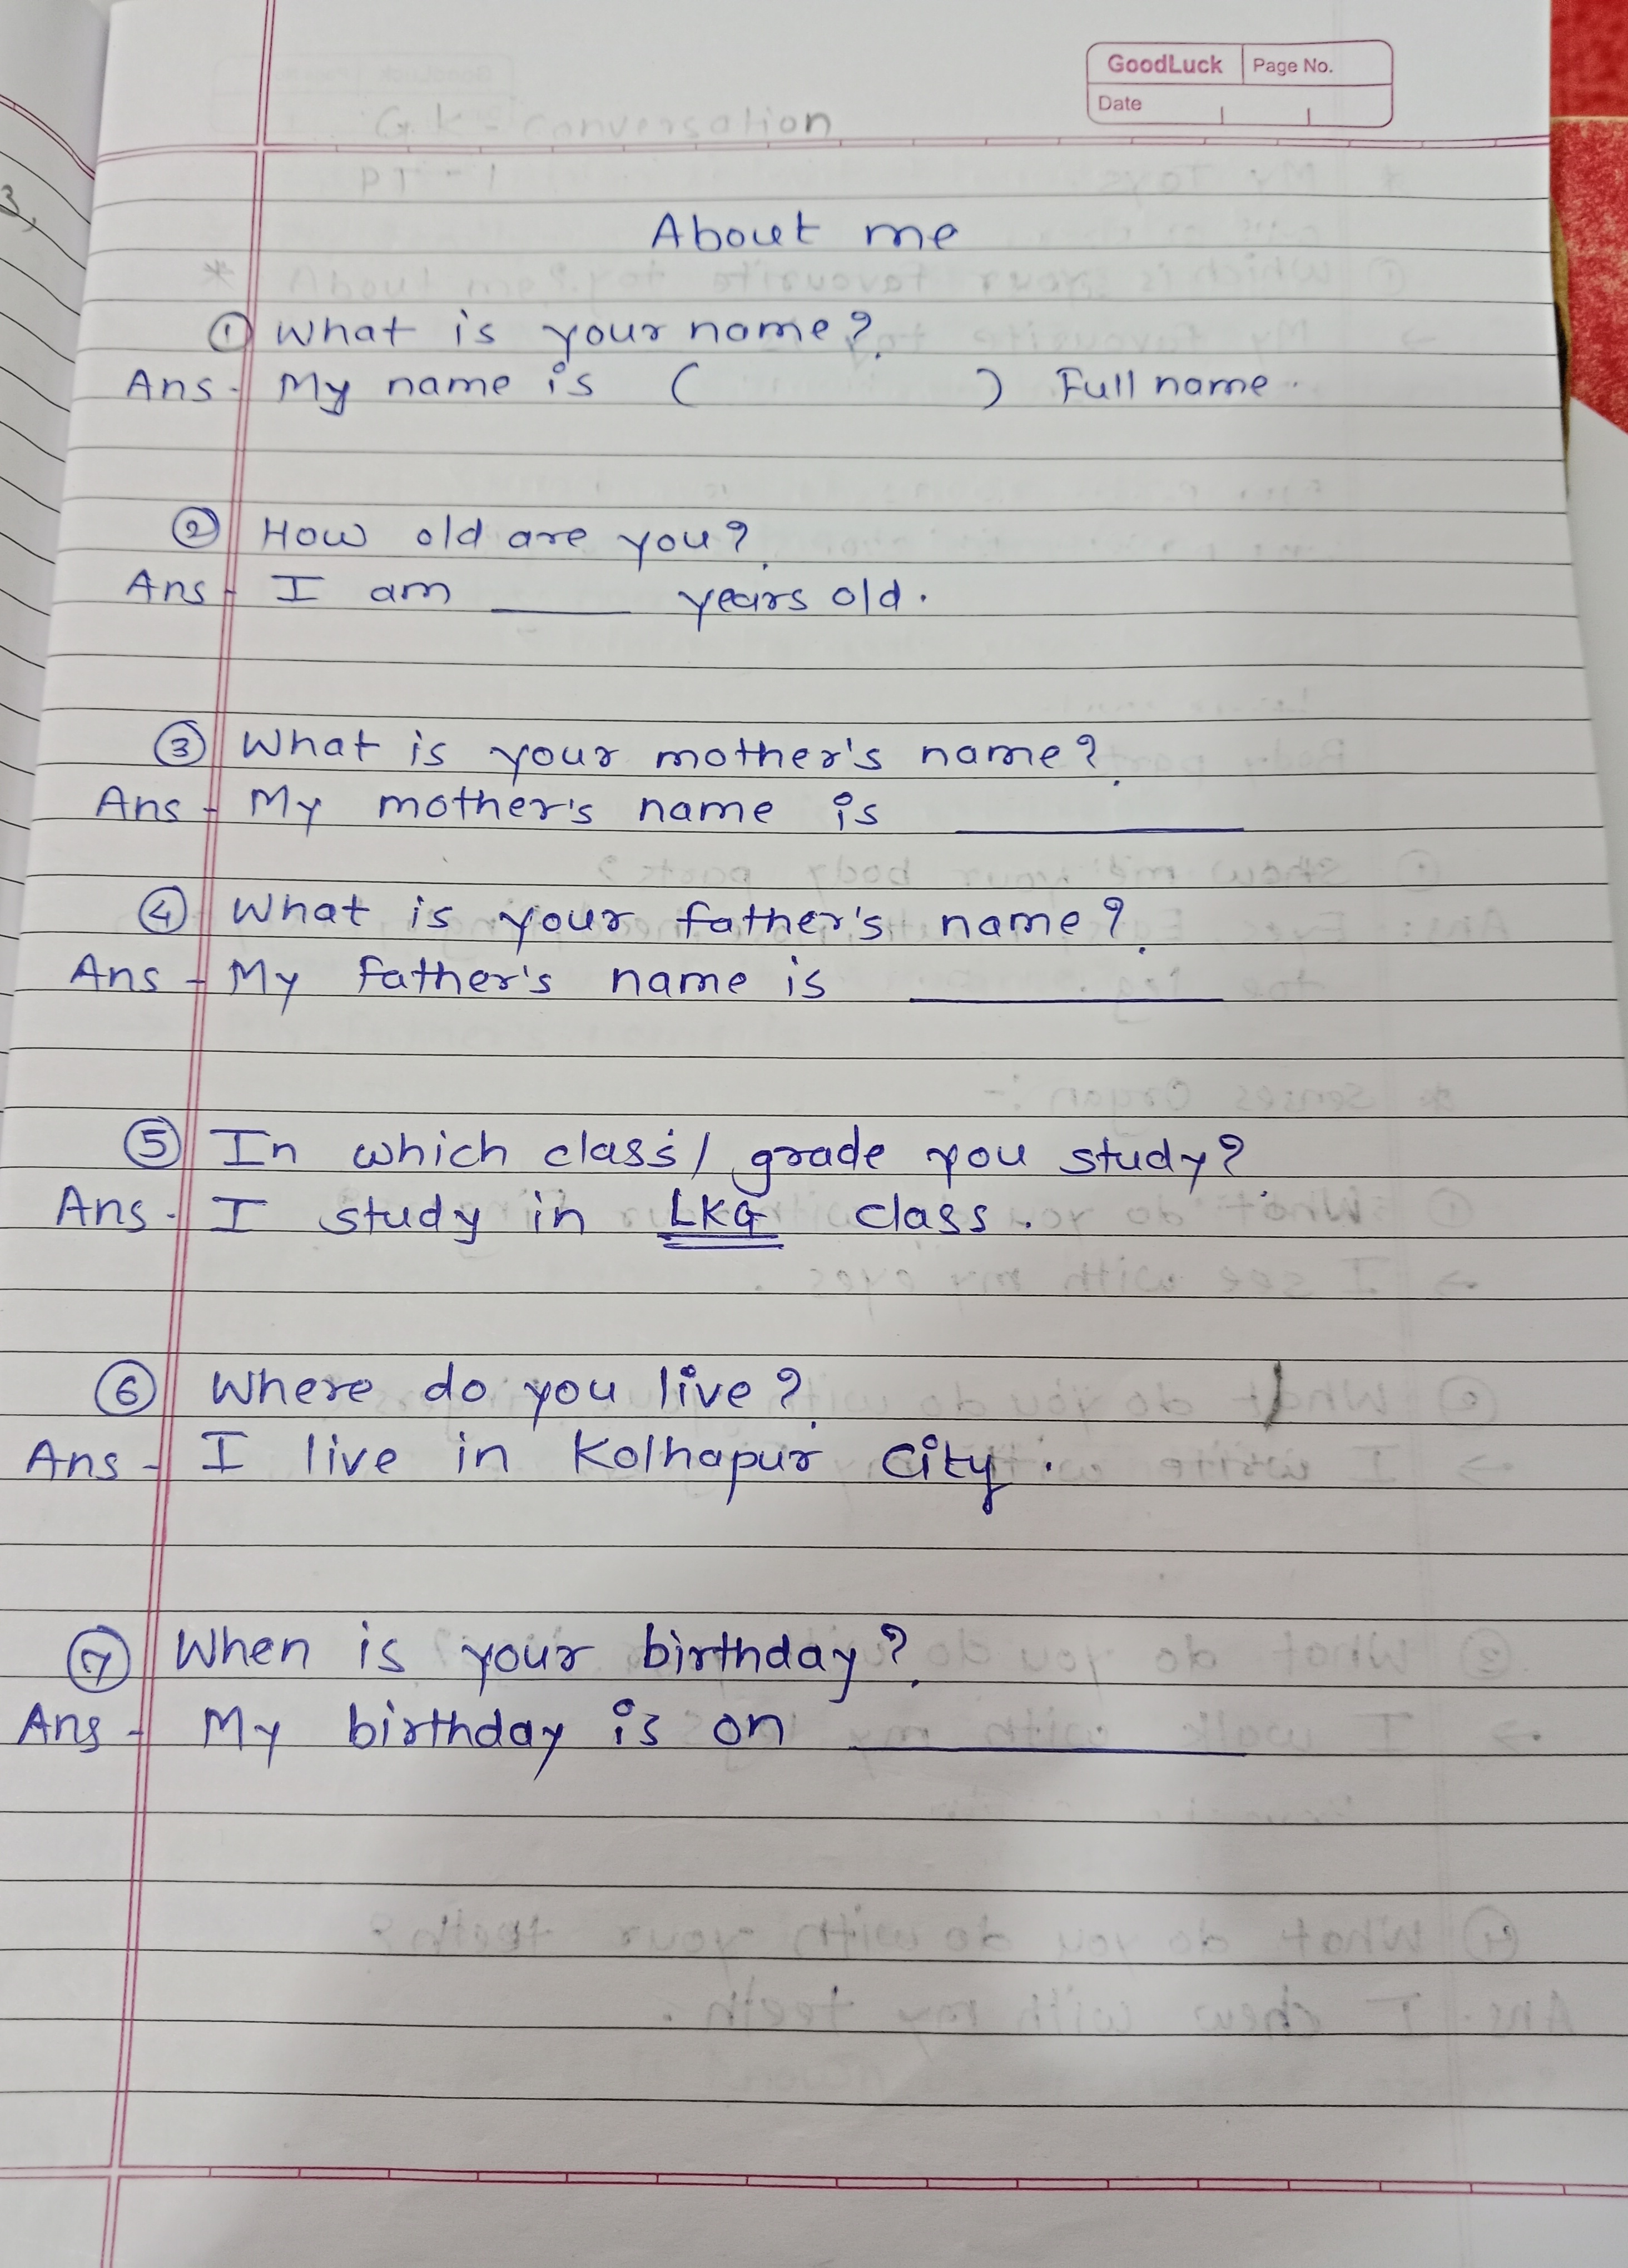 GoodLuck Page No.
Date
G.K - Conversation
PT - 1
About me
① What is your name?
Ans - My name is ( ) Full name.
② How old are you?
Ans - I am ____ years old.
③ What is your mother's name?
Ans - My mother's name is ________
④ What is your father's name?
Ans - My father's name is ________
⑤ In which class/ grade you study?
Ans - I study in LKG class.
⑥ Where do you live?
Ans - I live in Kolhapur City.
⑦ When is your birthday?
Ans - My birthday is on ________